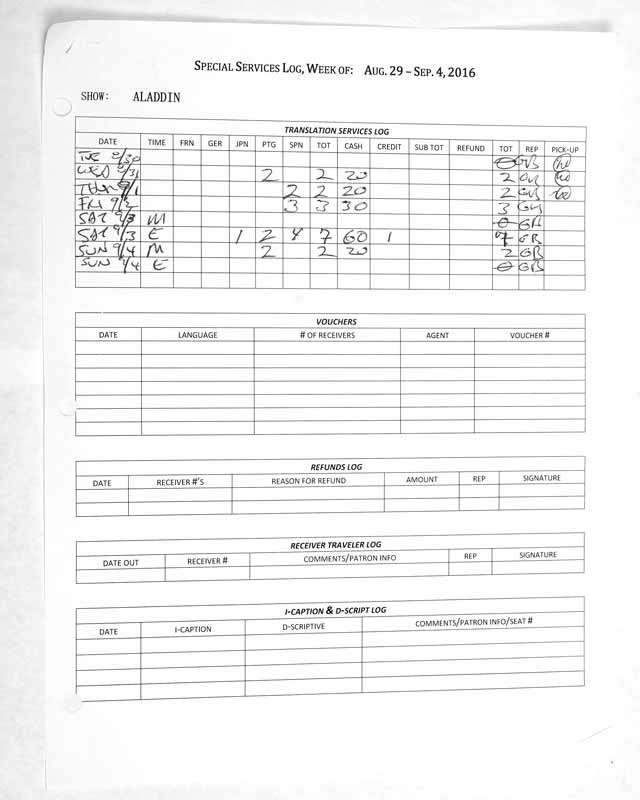 SPECIAL SERVICES LOG, WEEK OF: AUG. 29 – SEP. 4, 2016
SHOW: ALADDIN
TRANSLATION SERVICES LOG
DATE TIME FRN GER JPN PTG SPN TOT CASH CREDIT SUB TOT REFUND TOT REP PICK-UP
TUE 8/30 0 GB
WED 8/31 2 2 20 2
THUR 9/1 2 2 20 2 GB
FRI 9/2 3 3 30 3
SAT 9/3 M 0 GB
SAT 9/3 E 1 2 4 7 60 1 7 GB
SUN 9/4 M 2 2 20 2 GB
SUN 9/4 E 0 GB
VOUCHERS
DATE LANGUAGE # OF RECEIVERS AGENT VOUCHER #
REFUNDS LOG
DATE RECEIVER #'S REASON FOR REFUND AMOUNT REP SIGNATURE
RECEIVER TRAVELER LOG
DATE OUT RECEIVER # COMMENTS/PATRON INFO REP SIGNATURE
I-CAPTION & D-SCRIPT LOG
DATE I-CAPTION D-SCRIPTIVE COMMENTS/PATRON INFO/SEAT #